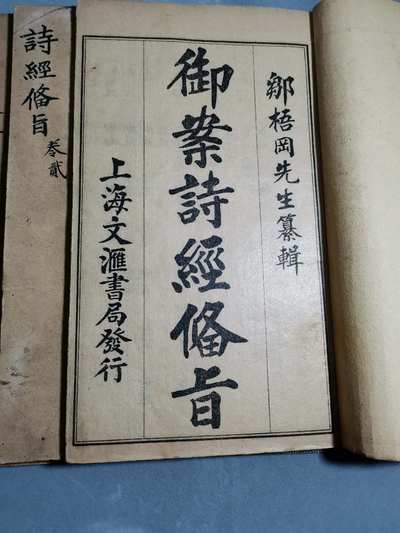 鄒梧岡先生纂輯
御案詩經備旨
上海文滙書局發行
詩經備旨 叁貳